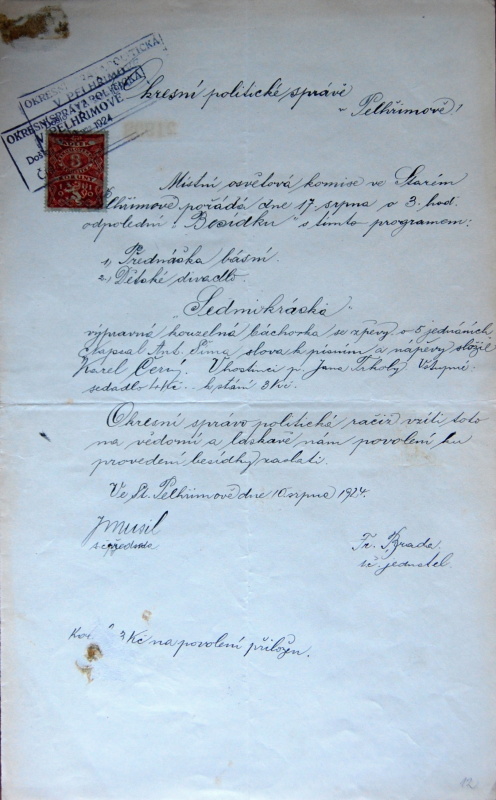 OKRESNÍ SPRÁVA POLITICKÁ
V PELHŘIMOVĚ
OKRESNÍ SPRÁVA POLITICKÁ
V PELHŘIMOVĚ
1924
8
Okresní politické správě
v Pelhřimově!
Místní osvětová komise ve Starém
Pelhřimově pořádá dne 17. srpna o 3. hod.
odpolední „Besídku" s tímto programem:
1) Přednáška básní.
2) Dětské divadlo.
„Sedmikráska"
výpravná kouzelná báchorka se zpěvy o 5 jednáních
Napsal Ant. Šíma slova k písním a nápěvy složil
Karel Černý. V hostinci p. Jana Trholy Vstupné
sedadlo 4 Kč k stání 3 Kč.
Okresní správo politická račiž vzíti toto
na vědomí a laskavě nám povolení ku
provedení besídky zaslati.
Ve St. Pelhřimově dne 10. srpna 1924.
J Musil
předseda
Fr. Brada
jednatel.
2 Kč na povolení přiložen.
12